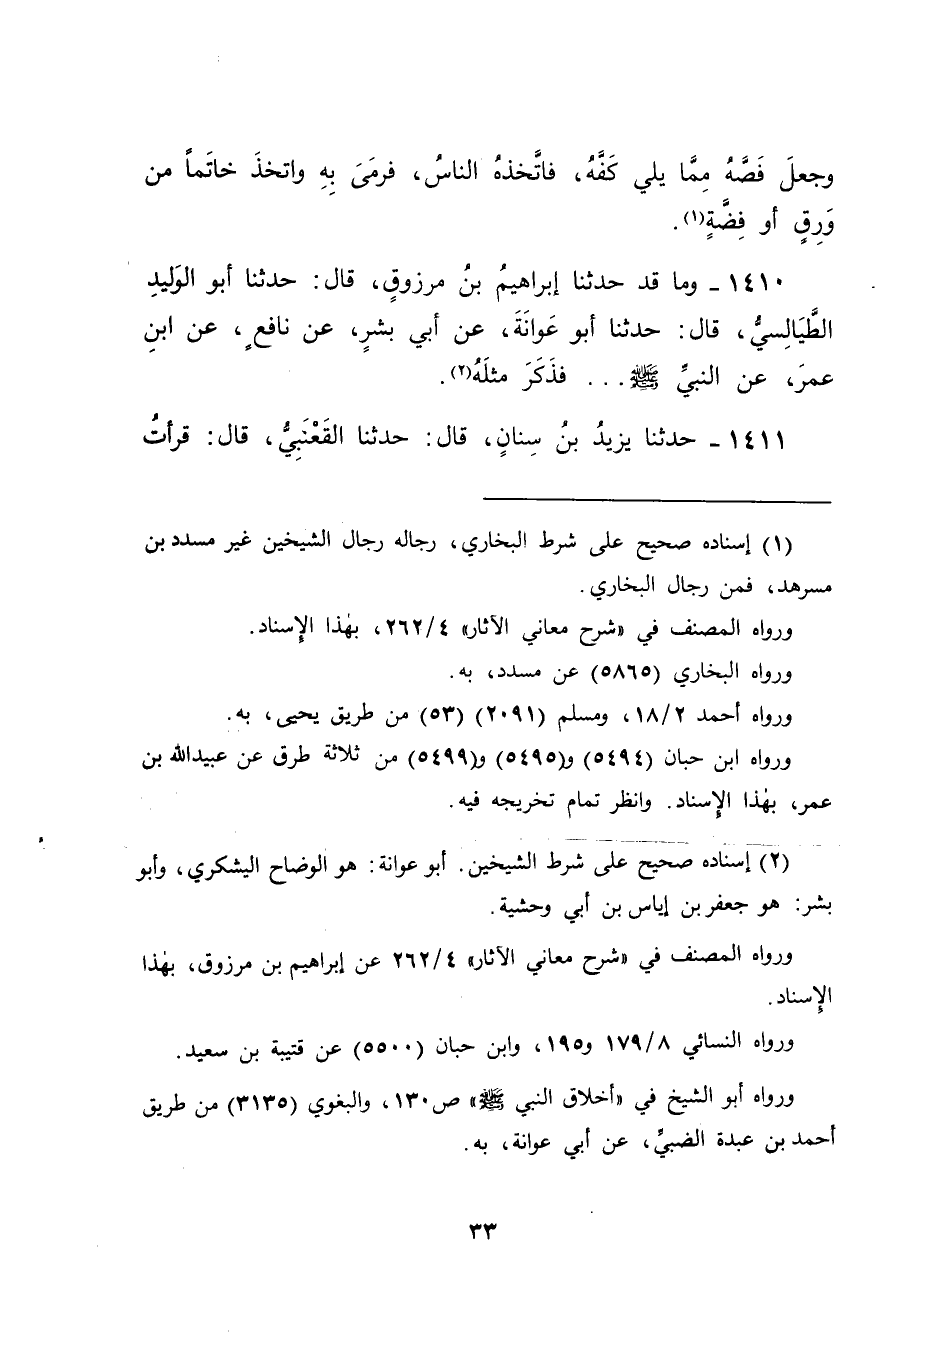 وجعلَ فَصَّهُ مِمَّا يلي كَفَّهُ، فاتَّخذهُ الناسُ، فرمَىَ بِهِ واتخذَ خاتَماً من
وَرِقٍ أو فِضَّةٍ(١).
١٤١٠ ـ وما قد حدثنا إبراهيمُ بنُ مرزوقٍ، قال: حدثنا أبو الوَليدِ
الطَّيَالِسيُّ، قال: حدثنا أبو عَوانَةَ، عن أبي بشرٍ، عن نافعٍ، عن ابنِ
عمرَ، عن النبيِّ ﷺ... فذَكَرَ مثلَهُ(٢).
١٤١١ ـ حدثنا يزيدُ بنُ سِنانٍ، قال: حدثنا القَعْنَبِيُّ، قال: قرأتُ
(١) إسناده صحيح على شرط البخاري، رجاله رجال الشيخين غير مسدد بن
مسرهد، فمن رجال البخاري.
ورواه المصنف في «شرح معاني الآثار» ٢٦٢/٤، بهٰذا الإِسناد.
ورواه البخاري (٥٨٦٥) عن مسدد، به.
ورواه أحمد ١٨/٢، ومسلم (٢٠٩١) (٥٣) من طريق يحيى، به.
ورواه ابن حبان (٥٤٩٤) و(٥٤٩٥) و(٥٤٩٩) من ثلاثة طرق عن عبيدالله بن
عمر، بهٰذا الإِسناد. وانظر تمام تخريجه فيه.
(٢) إسناده صحيح على شرط الشيخين. أبو عوانة: هو الوضاح اليشكري، وأبو
بشر: هو جعفر بن إياس بن أبي وحشية.
ورواه المصنف في «شرح معاني الآثار» ٢٦٢/٤ عن إبراهيم بن مرزوق، بهٰذا
الإِسناد.
ورواه النسائي ١٧٩/٨ و١٩٥، وابن حبان (٥٥٠٠) عن قتيبة بن سعيد.
ورواه أبو الشيخ في «أخلاق النبي ﷺ» ص١٣٠، والبغوي (٣١٣٥) من طريق
أحمد بن عبدة الضبيِّ، عن أبي عوانة، به.
٣٣